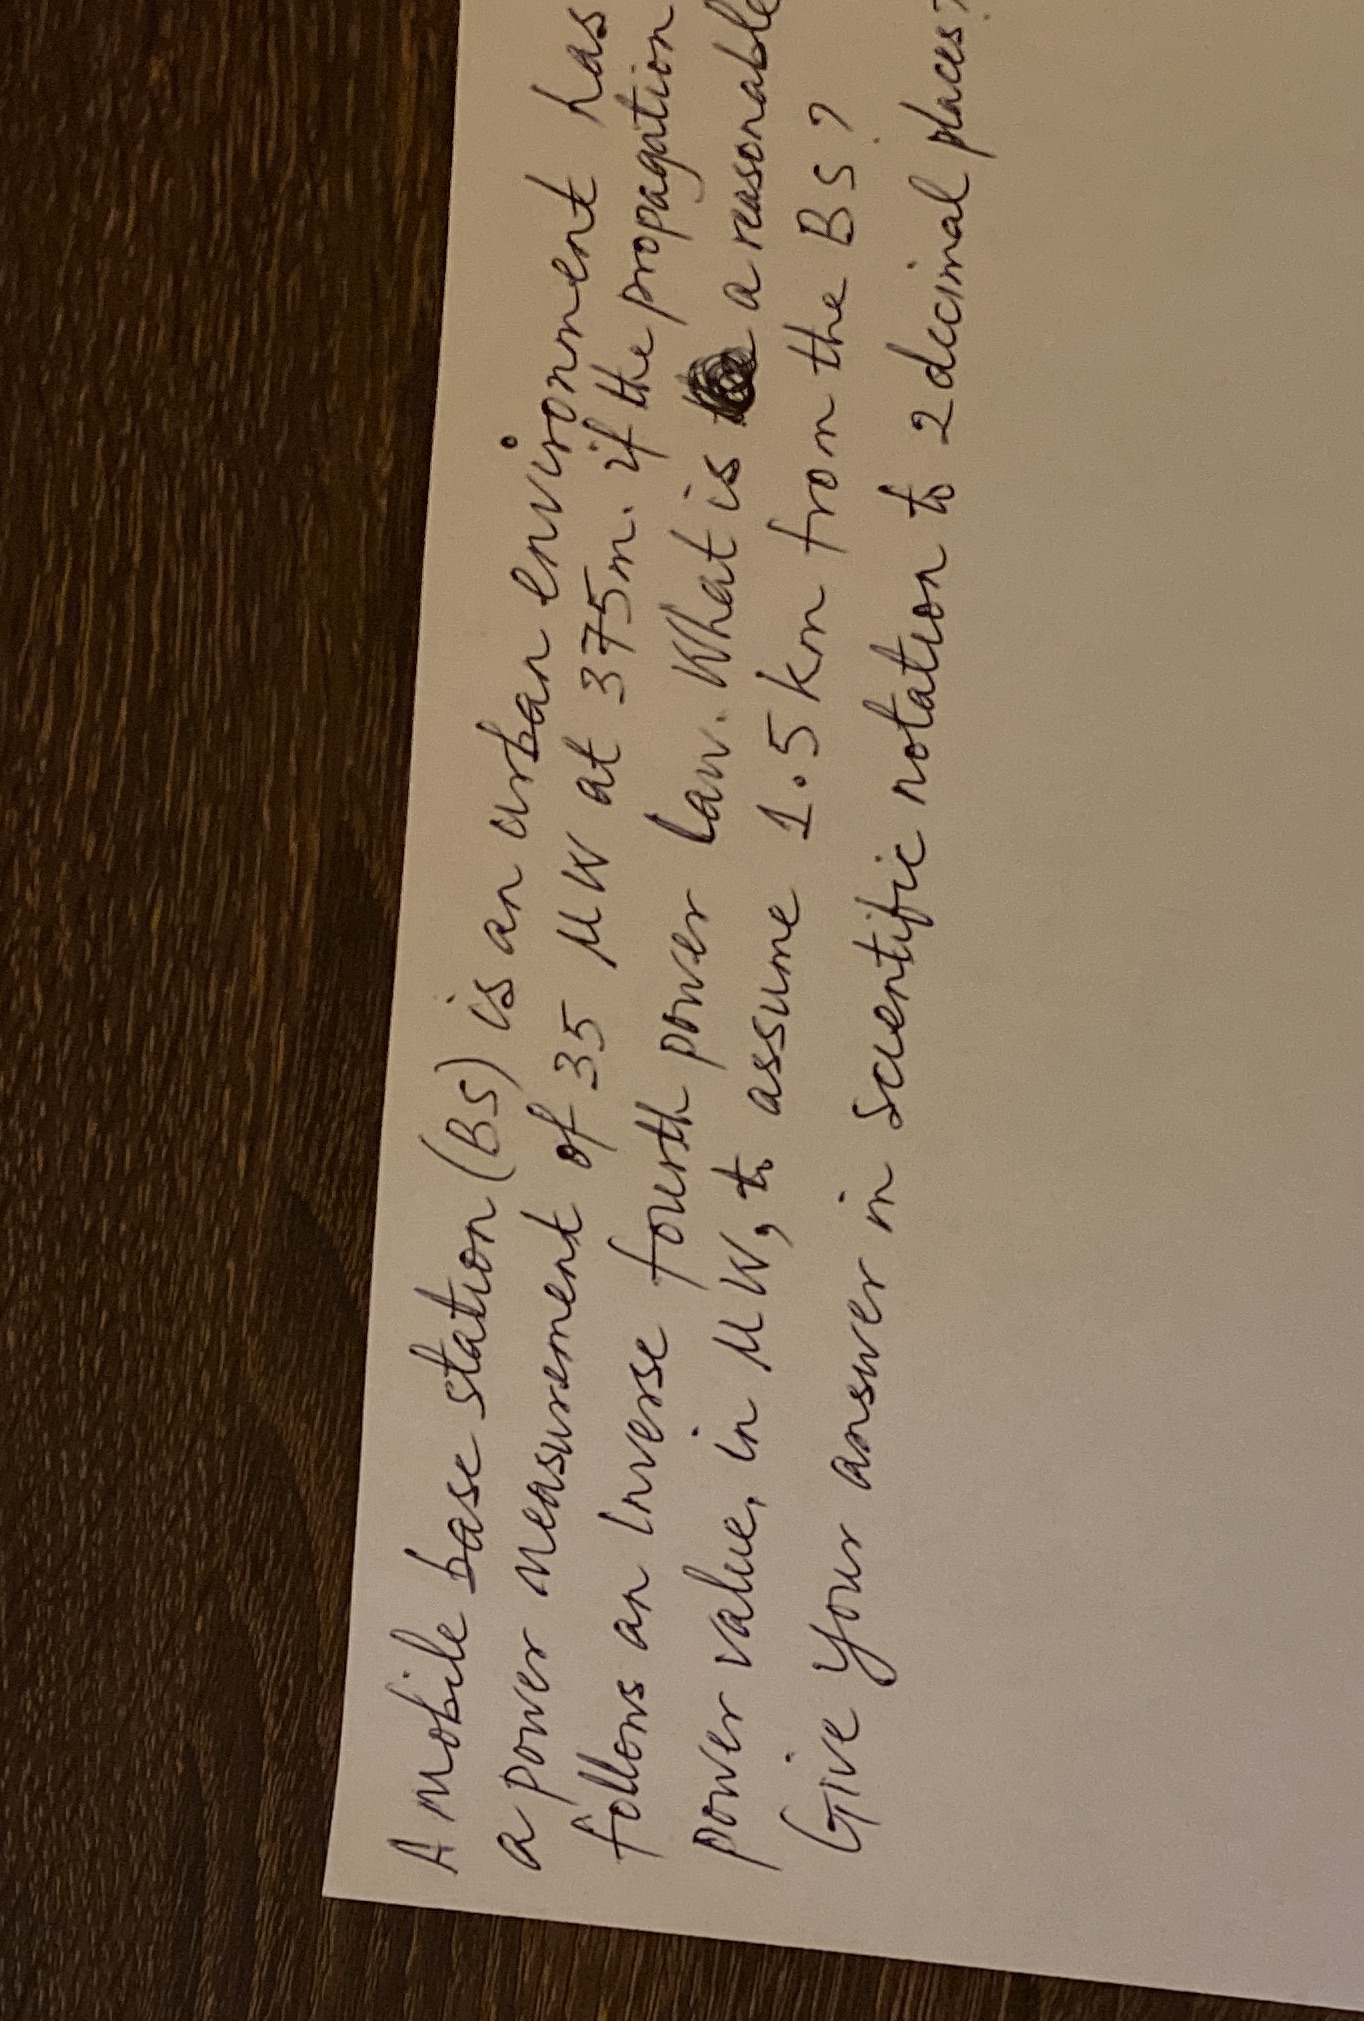 A mobile base station (BS) is an urban environment has
a power measurement of 35 μW at 375m. if the propagation
follows an inverse fourth power law. What is a reasonable
power value, in μW, to assume 1.5 km from the BS?
Give your answer in scientific notation to 2 decimal places?